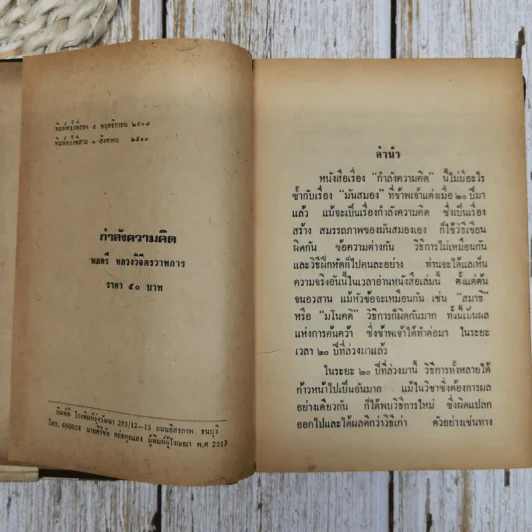 พิมพ์ครั้งที่สอง ๕ พฤศจิกายน ๒๕๐๘
พิมพ์ครั้งที่สาม ๑ สิงหาคม ๒๕๑๓
กำลังความคิด
พลตรี หลวงวิจิตรวาทการ
ราคา ๕๐ บาท
พิมพ์ที่ โรงพิมพ์รุ่งวัฒนา 293/12-13 ถนนอิสรภาพ ธนบุรี
โทร. 660058 ผู้พิมพ์ผู้โฆษณา พ.ศ 2513
คำนำ
หนังสือเรื่อง “กำลังความคิด” นี้ไม่มีอะไร
ซ้ำกับเรื่อง “มันสมอง” ที่ข้าพเจ้าแต่งเมื่อ ๒๐ ปีมา
แล้ว แม้จะเป็นเรื่องกำลังความคิด ซึ่งเป็นเรื่อง
สร้าง สมรรถภาพของมันสมองเอง ก็ใช้วิธีเขียน
ผิดกัน ข้อความต่างกัน วิธีการไม่เหมือนกัน
และวิธีฝึกหัดก็ไปคนละอย่าง ท่านจะได้แลเห็น
ความจริงอันนี้ในเวลาอ่านหนังสือเล่มนี้ ตั้งแต่ต้น
จนอวสาน แม้หัวข้อจะเหมือนกัน เช่น “สมาธิ”
หรือ “มโนคติ” วิธีการก็ผิดกันมาก ทั้งนี้เป็นผล
แห่งการค้นคว้า ซึ่งข้าพเจ้าได้ทำต่อมา ในระยะ
เวลา ๒๐ ปีที่ล่วงมาแล้ว
ในระยะ ๒๐ ปีที่ล่วงมานี้ วิธีการทั้งหลายได้
ก้าวหน้าไปเป็นอันมาก แม้ในวิชาซึ่งต้องการผล
อย่างเดียวกัน ก็ได้พบวิธีการใหม่ ซึ่งผิดแปลก
ออกไปและได้ผลดีกว่าวิธีเก่า ตัวอย่างเช่นทาง